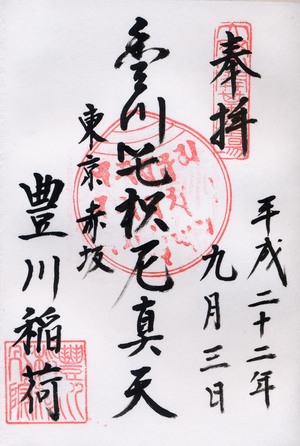 奉拝
平成二十二年
九月三日
豊川吒枳尼真天
東京赤坂
豊川稲荷